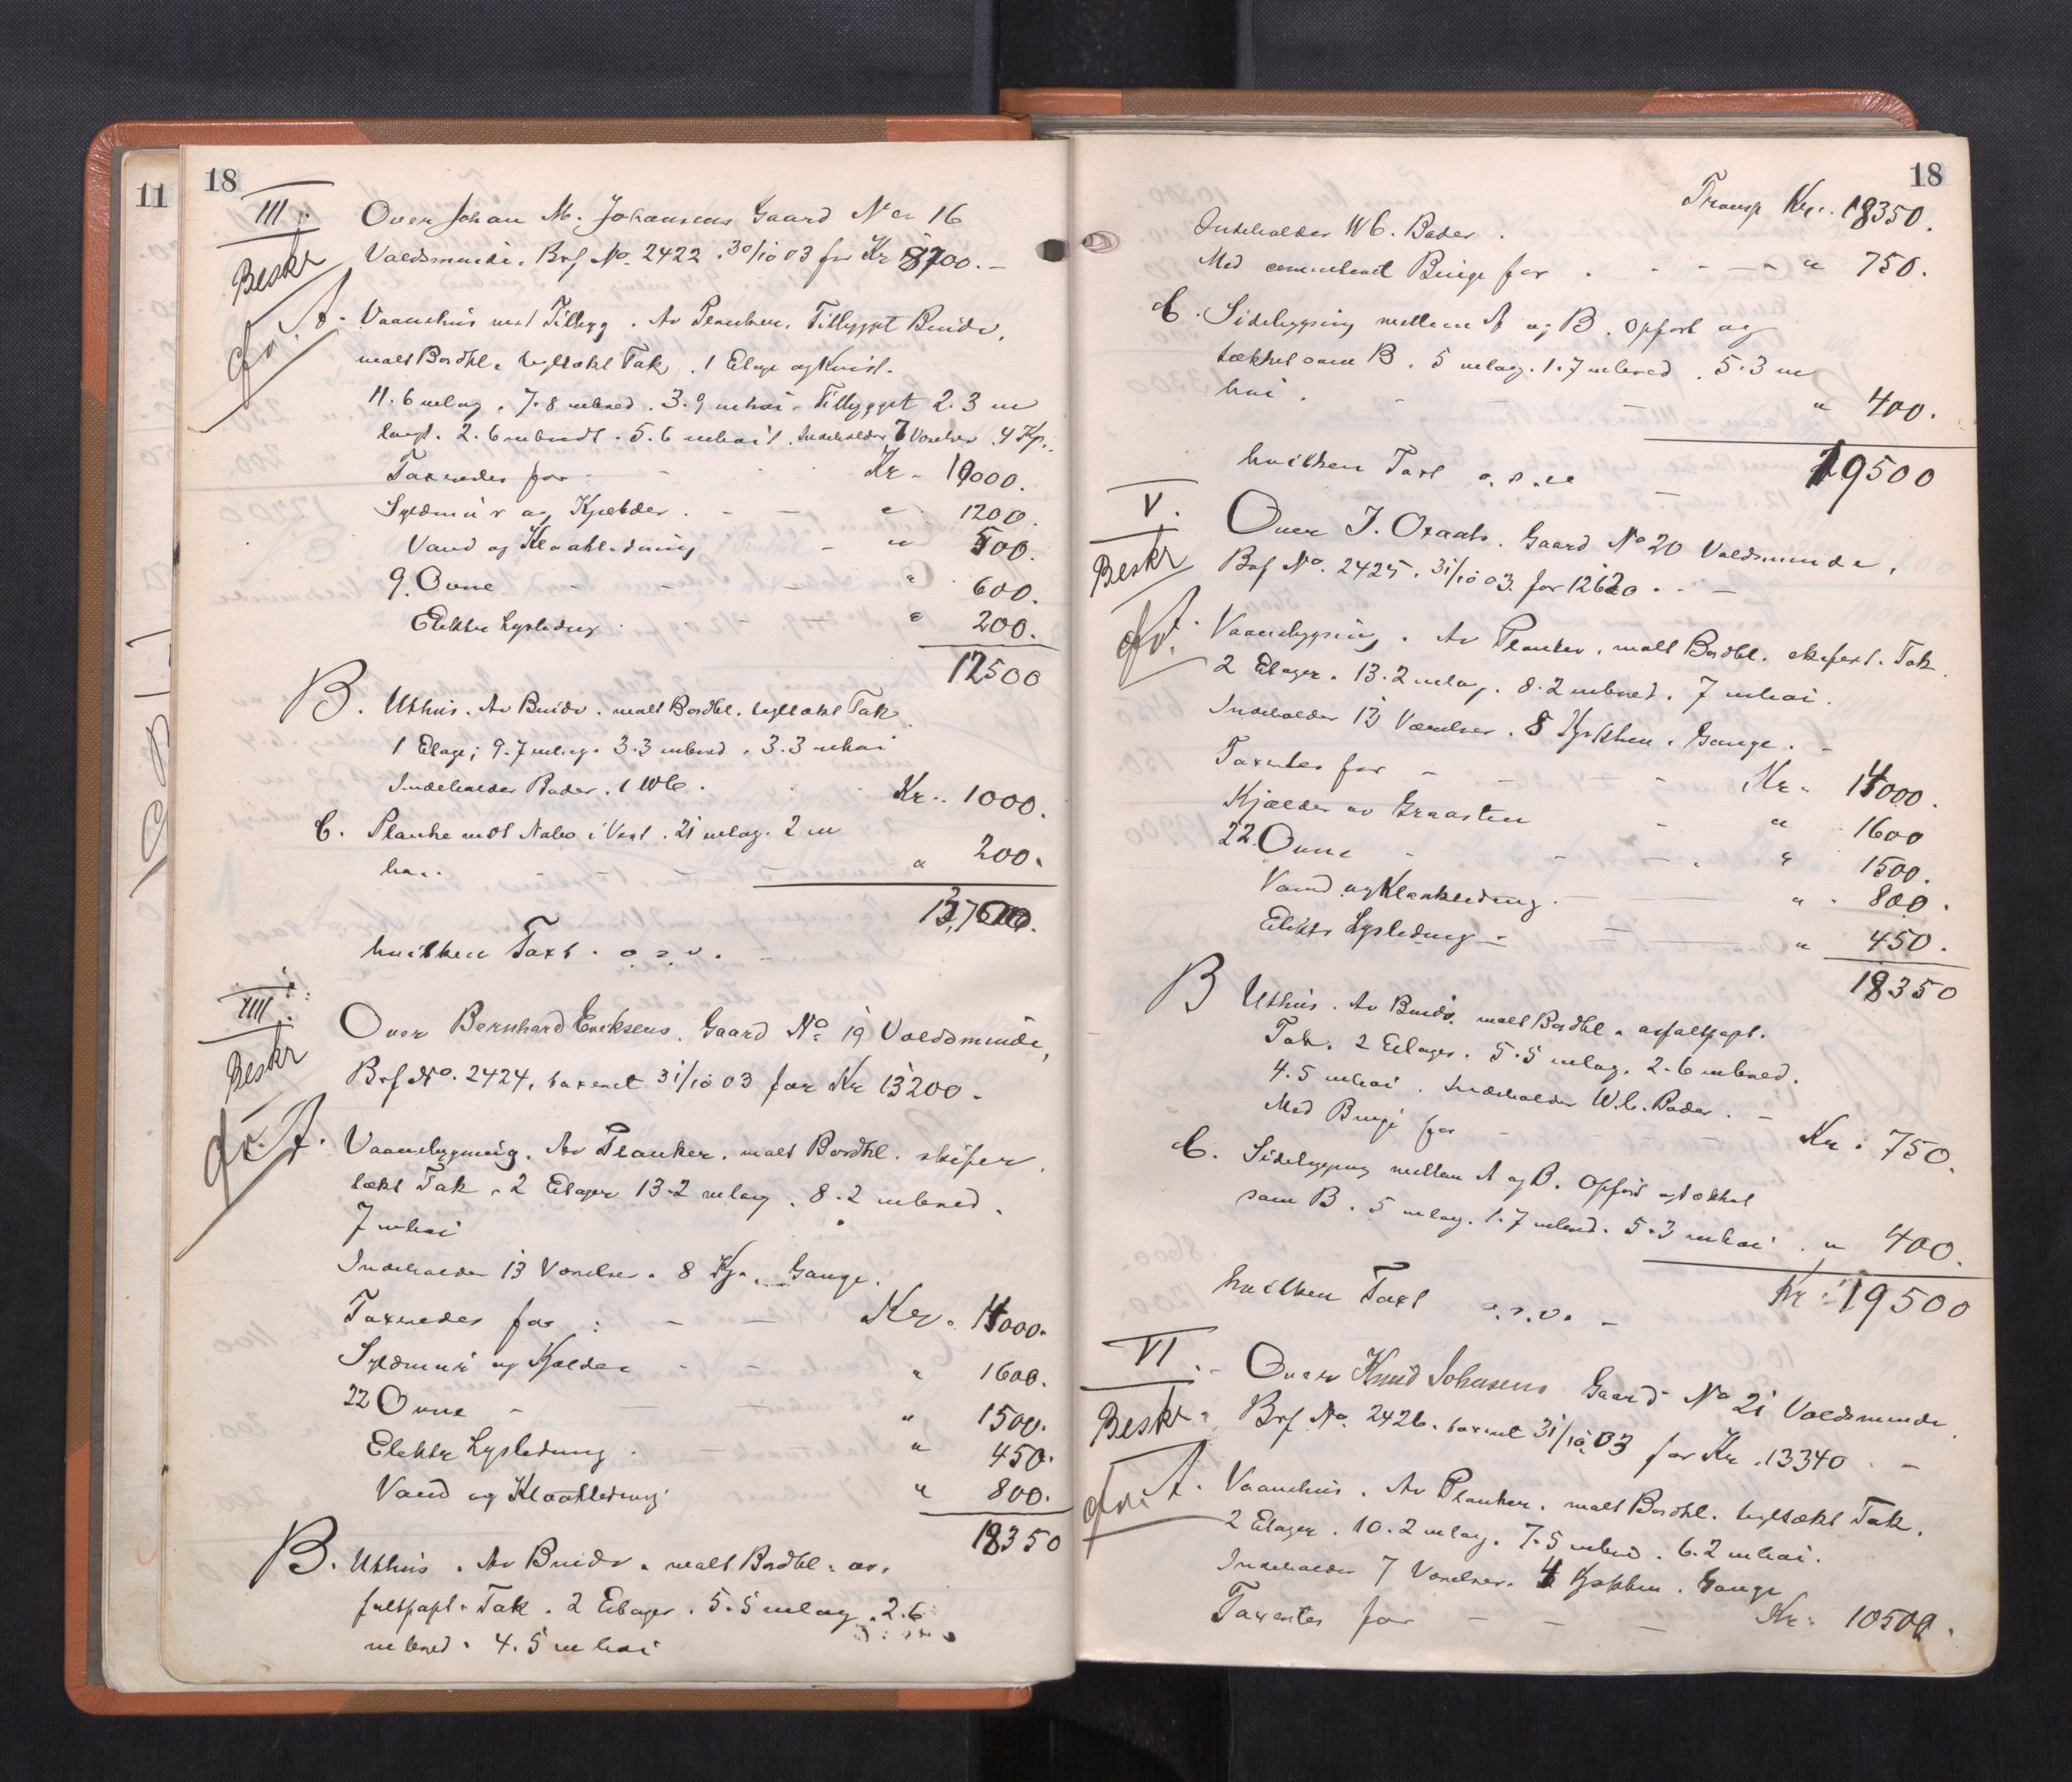 11
18
III.
Over Johan M. Johansens Gaard No 16
Beskr
Valdsminde. Brf No. 2422. 30/10 03 for Kr 8700.-
A. Vaanehus med Tilbyg. Av Planker. Tilbygget Bindv.
malt Bordkl. tegltækt Tak. 1 Etage og Kvist.
11.6 m lag. 7.8 m bred. 3.9 m høi. Tilbygget 2.3 m
langt. 2.6 m bredt. 5.6 m høit. Indeholder 7 Værelser. 4 Kj.
Taxeredes for - - Kr. 10000.
Syldmur og Kjelder. - - " 1200.
Vand og Kloakledning - " 500.
9. Ovne - - - " 600.
Elektr Lysledng - - " 200.
12500
B. Uthus. Av Bindv. malt Bordkl. tegltækt Tak.
1 Etage; 9.7 m lag. 3.3 m bred. 3.3 m høi
Indeholder Boder. 1 WC. Kr. 1000.
C. Planke mot Nabo i Vest. 21 m lag. 2 m
høi. - " 200.
13,700.
hvilken Taxt. o.s.v. -
IIII.
Over Bernhard Ereksens. Gaard No 19 Valdsminde,
Beskr
Brf No. 2424, taxeret 31/10 03 for Kr 13200.
A. Vaanebygning. Av Planker. malt Bordkl. skifer
tækt Tak. 2 Etager 13.2 m lang. 8.2 m bred.
7 m høi
Indeholder 13 Værelser. 8 Kj. Gange.
Taxeredes for : - - Kr. 14000.
Syldmur og Kjelder - - " 1600.
22 Ovne - - " 1500.
Elektr Lysledning. - " 450.
Vand og Kloakledning " 800.
18350
B. Uthus. Av Bindv. malt Bordkl. as.
faltpapt. Tak. 2 Etager. 5.5 m lag. 2.6
m bred. 4.5 m høi
18
Transp Kr. 18350.
Indeholder WC. Boder.
Med Binge for . - - - " 750.
C. Sidebygning mellem A og B. Opført og
tækket som B. 5 m lag. 1.7 m bred. 5.3 m
høi. - - " 400.
19500
hvilken Taxt o.s.v. -
V.
Over J. Oraats. Gaard No 20 Valdsminde.
Beskr
Brf No. 2425. 31/10 03. for 12620. -
A. Vaanebygning. Av Planker. malt Bordkl. skifert. Tak.
2 Etager. 13.2 m lag. 8.2 m bred. 7 m høi.
Indeholder 13 Værelser. 8 Kjøkken. Gange. -
Taxertes for - - - Kr. 14000.
Kjælder av Graasten - " 1600
22 Ovne - - - " 1500.
Vand og Kloakledning. - " 800.
Elektr Lysledning - - " 450.
18350
B Uthus. Av Bindv. malt Bordkl. asfaltpapt.
Tak. 2 Etager. 5.5 m lag. 2.6 m bred.
4.5 m høi. Indeholder W.C. Boder. -
Med Binge for - - Kr. 750.
C. Sidebygning mellem A og B. Opført og tækket
som B. 5 m lag. 1.7 m bred. 5.3 m høi. " 400.
Kr. 19500
hvilken Taxt o.s.v. -
VI.
- Over Knud Johnsens Gaard No 21 Valdsminde.
Beskr.
Brf No. 2426. taxeret 31/10 03 for Kr. 13340. -
A. Vaanehus. Av Planker. malt Bordkl. tegltækt Tak.
2 Etager. 10.2 m lag. 7.5 m bred. 6.2 m høi.
Indeholder 7 Værelser. 4 Kjøkken. Gange
Taxertes for - - - Kr. 10500.